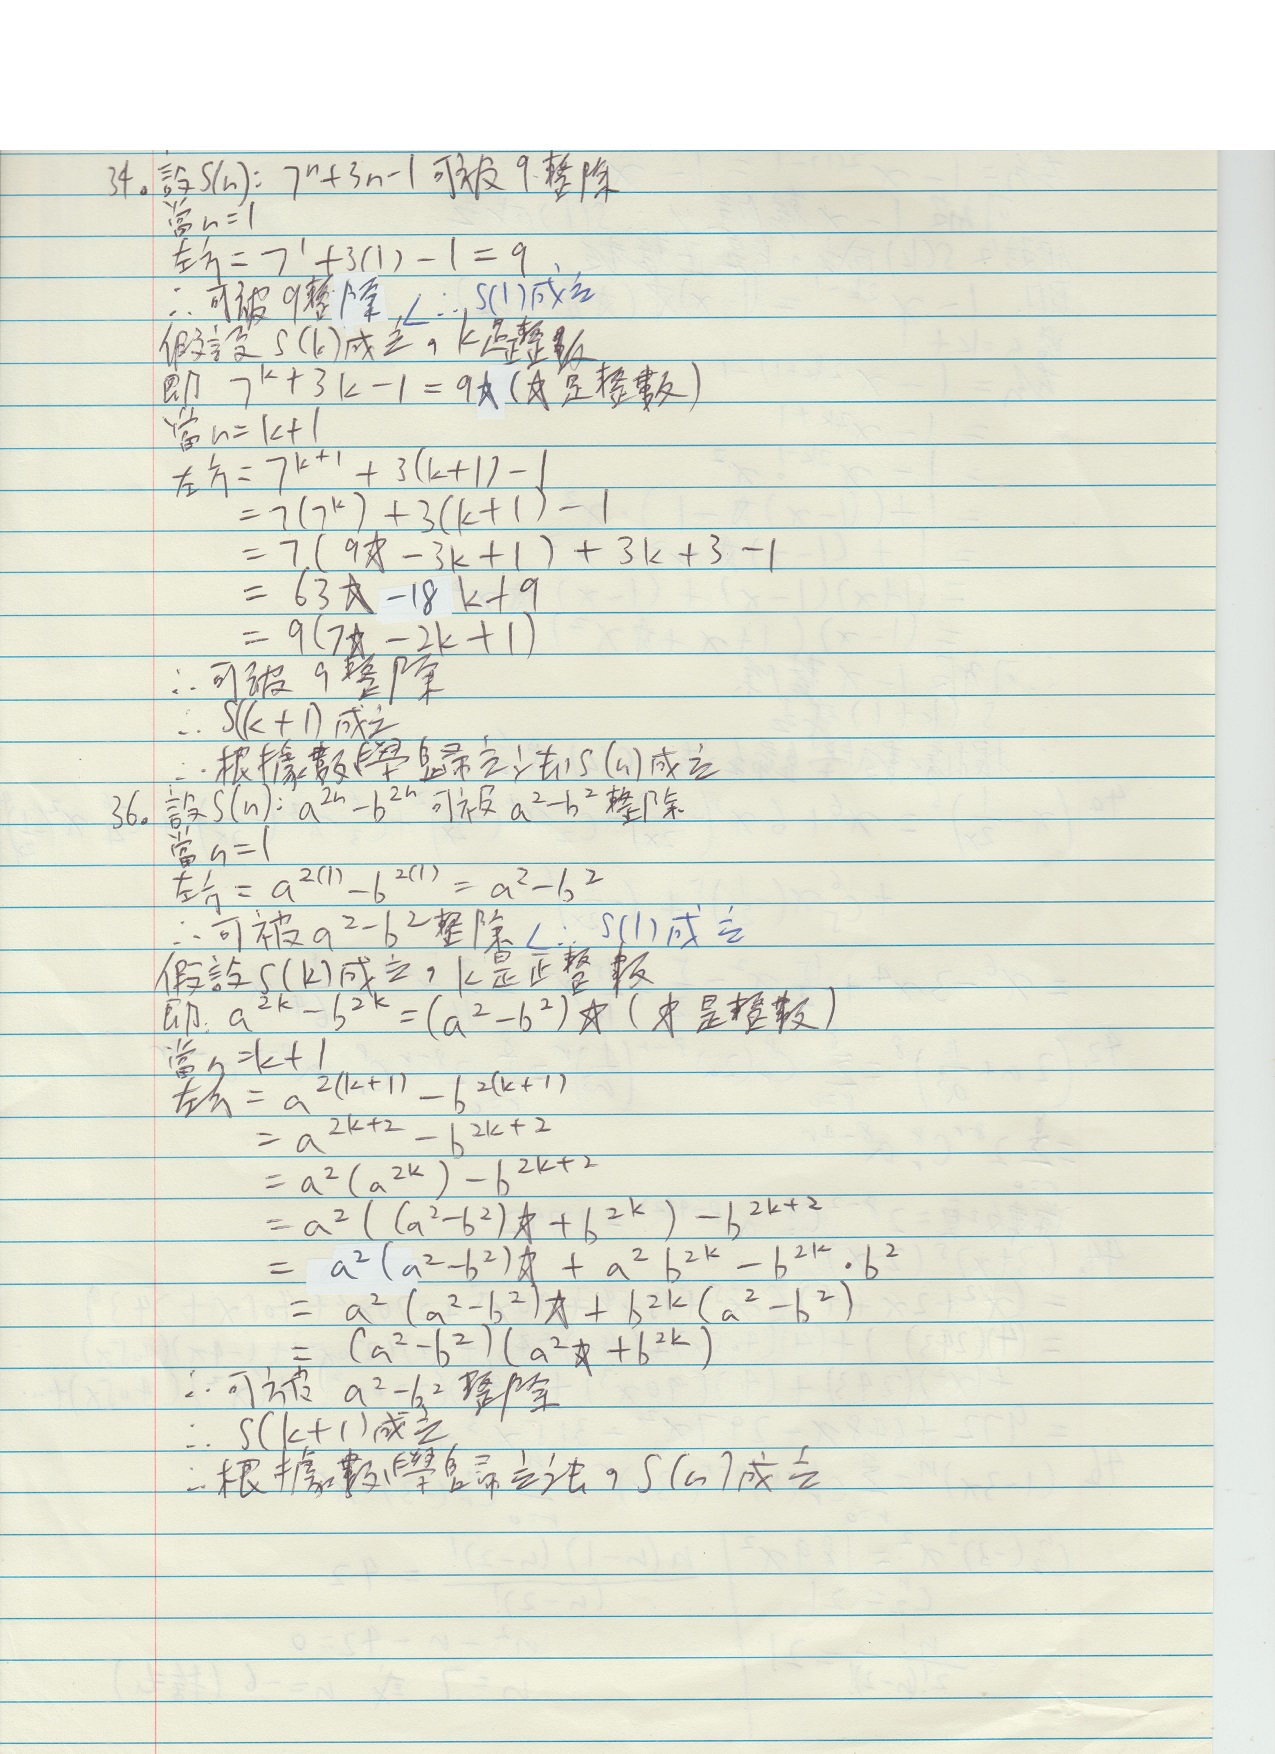 34. 設S(n): 7ⁿ+3n-1可被9整除
當n=1
左方=7¹+3(1)-1=9
∴可被9整除 ∠∴S(1)成立
假設S(k)成立，k是正整數
即 7ᵏ+3k-1=9☆(☆是整數)
當n=k+1
左方=7ᵏ⁺¹+3(k+1)-1
=7(7ᵏ)+3(k+1)-1
=7(9☆-3k+1)+3k+3-1
=63☆-18k+9
=9(7☆-2k+1)
∴可被9整除
∴S(k+1)成立
∴根據數學歸立法，S(n)成立
36. 設S(n): a²ⁿ-b²ⁿ可被a²-b²整除
當n=1
左方=a²⁽¹⁾-b²⁽¹⁾=a²-b²
∴可被a²-b²整除 ∠∴S(1)成立
假設S(k)成立，k是正整數
即: a²ᵏ-b²ᵏ=(a²-b²)☆(☆是整數)
當n=k+1
左方=a²⁽ᵏ⁺¹⁾-b²⁽ᵏ⁺¹⁾
=a²ᵏ⁺²-b²ᵏ⁺²
=a²(a²ᵏ)-b²ᵏ⁺²
=a²((a²-b²)☆+b²ᵏ)-b²ᵏ⁺²
=a²(a²-b²)☆+a²b²ᵏ-b²ᵏ·b²
=a²(a²-b²)☆+b²ᵏ(a²-b²)
=(a²-b²)(a²☆+b²ᵏ)
∴可被a²-b²整除
∴S(k+1)成立
∴根據數學歸立法，S(n)成立